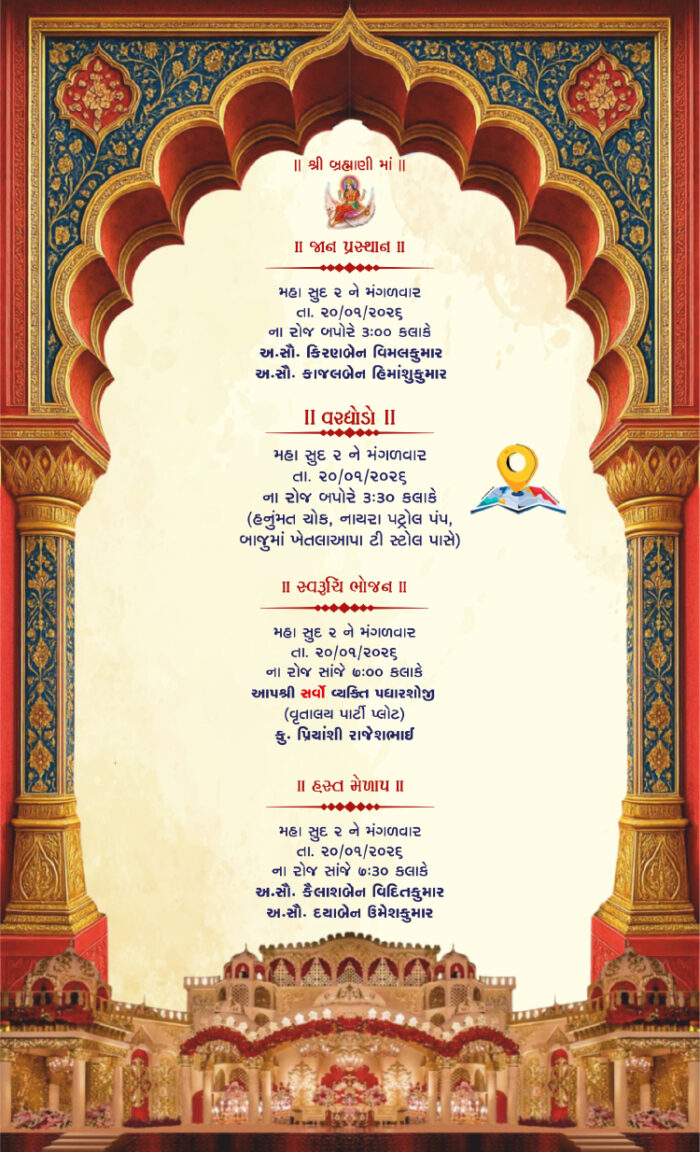 ॥ શ્રી બ્રહ્માણી માં ॥
॥ જાન પ્રસ્થાન ॥
મહા સુદ ૨ ને મંગળવાર
તા. ૨૦/૦૧/૨૦૨૬
ના રોજ બપોરે ૩:૦૦ કલાકે
અ.સૌ. કિરણબેન વિમલકુમાર
અ.સૌ. કાજલબેન હિમાંશુકુમાર
॥ વરઘોડો ॥
મહા સુદ ૨ ને મંગળવાર
તા. ૨૦/૦૧/૨૦૨૬
ના રોજ બપોરે ૩:૩૦ કલાકે
(હનુંમત ચોક, નાયરા પટ્રોલ પંપ,
બાજુમાં ખેતલાઆપા ટી સ્ટોલ પાસે)
॥ સ્વરૂચિ ભોજન ॥
મહા સુદ ૨ ને મંગળવાર
તા. ૨૦/૦૧/૨૦૨૬
ના રોજ સાંજે ૭:૦૦ કલાકે
આપશ્રી સર્વો વ્યક્તિ પધારશોજી
(વૃતાલય પાર્ટી પ્લોટ)
કુ. પ્રિયાંશી રાજેશભાઈ
॥ હસ્ત મેળાપ ॥
મહા સુદ ૨ ને મંગળવાર
તા. ૨૦/૦૧/૨૦૨૬
ના રોજ સાંજે ૭:૩૦ કલાકે
અ.સૌ. કૈલાશબેન વિદિતકુમાર
અ.સૌ. દયાબેન ઉમેશકુમાર